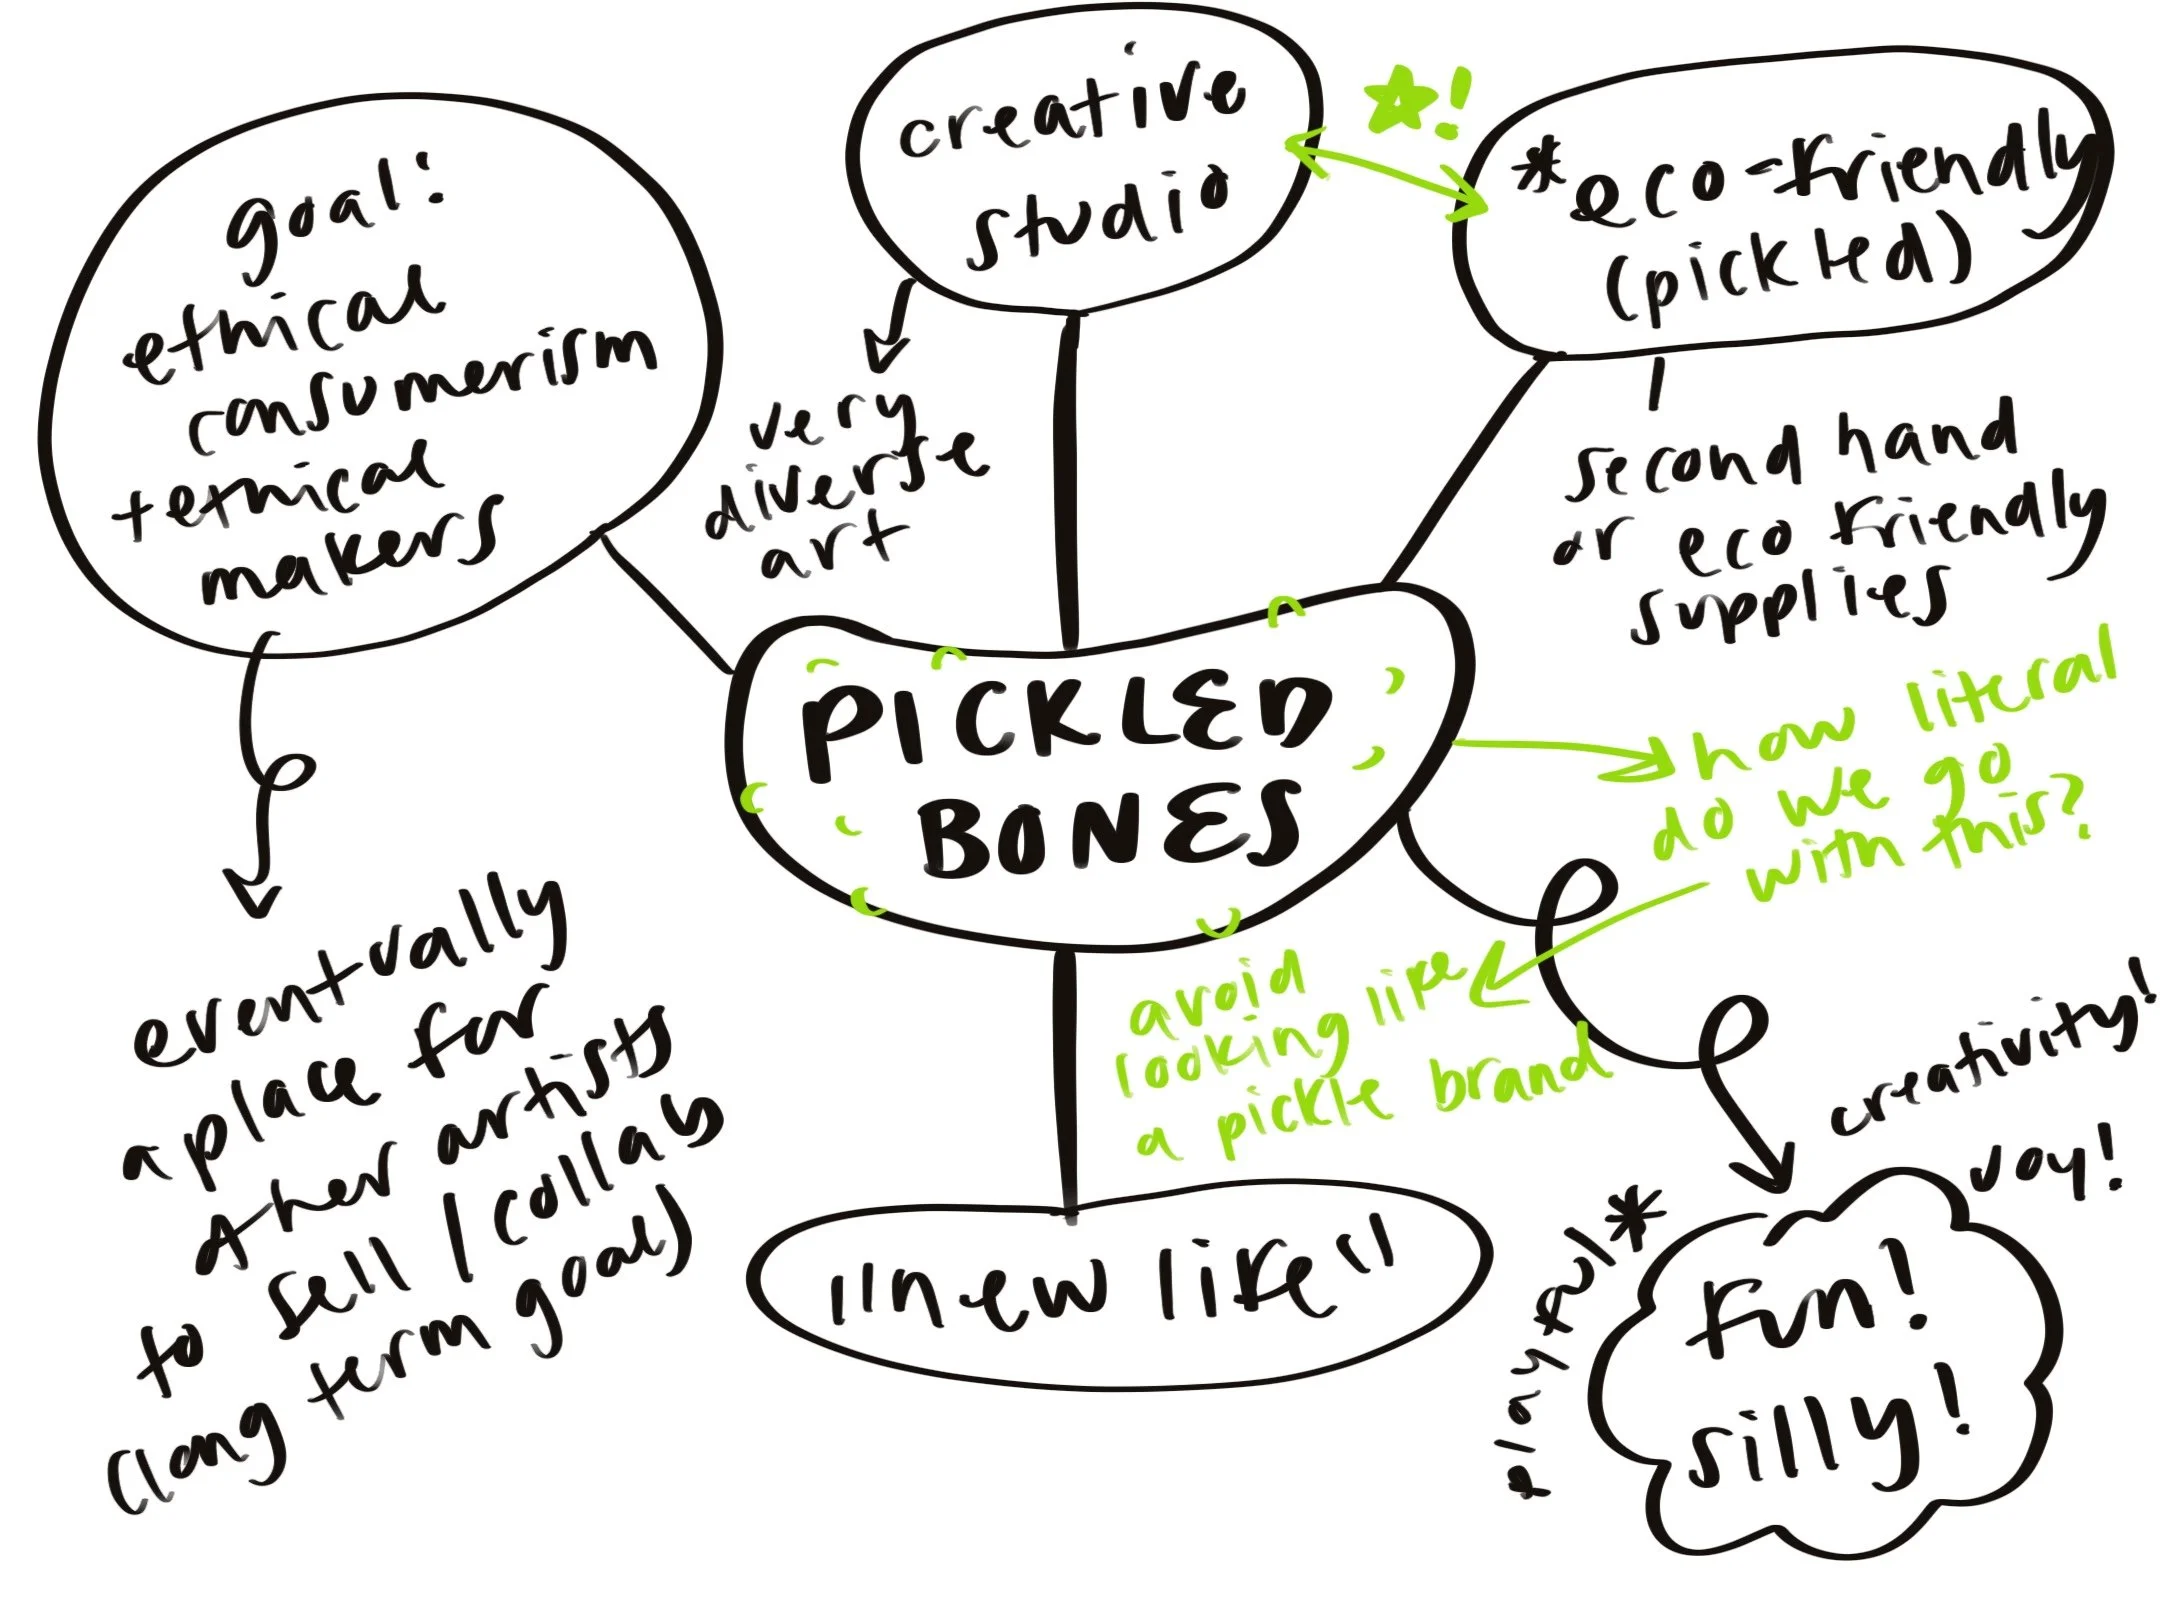 goal:
ethical
consumerism
+ ethical
makers
eventually
a place for
other artists
to sell / collab
(long term goal)
creative
studio
very
diverse
art
!
*eco-friendly
(pickled)
second hand
or eco friendly
supplies
PICKLED
BONES
how literal
do we go
with this?
avoid
looking like
a pickle brand
"new life"
creativity!
joy!
playful*
fun!
silly!